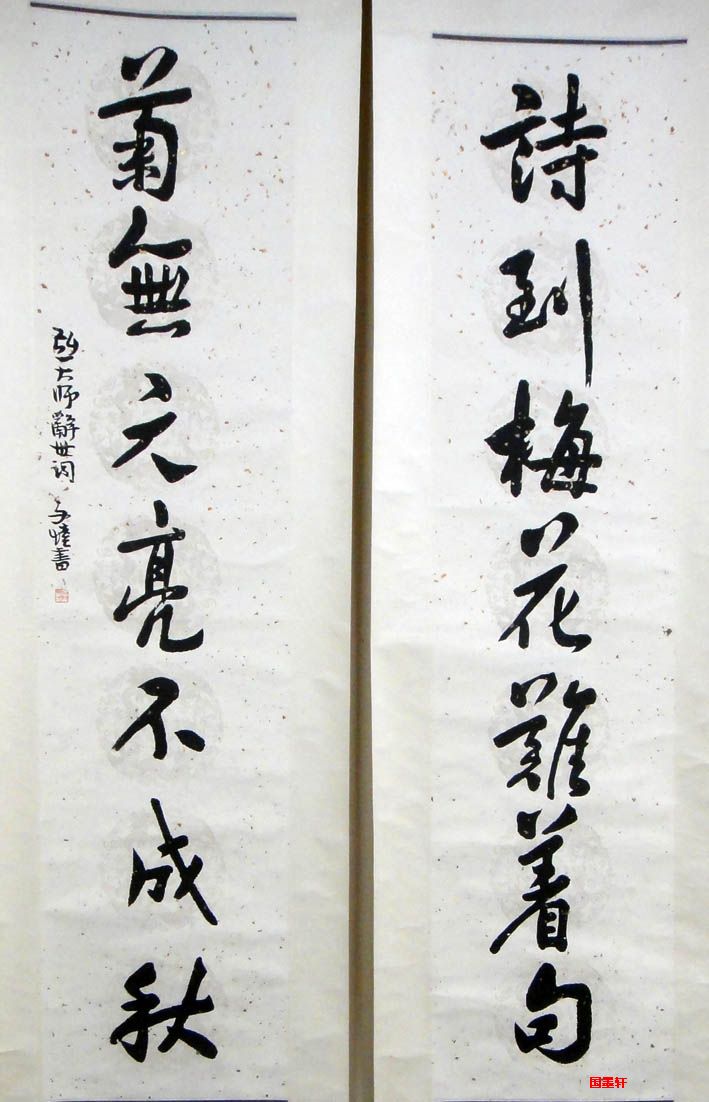 詩到梅花難着句
菊無元亮不成秋
弘一大师辭世词 子愷書
国墨轩